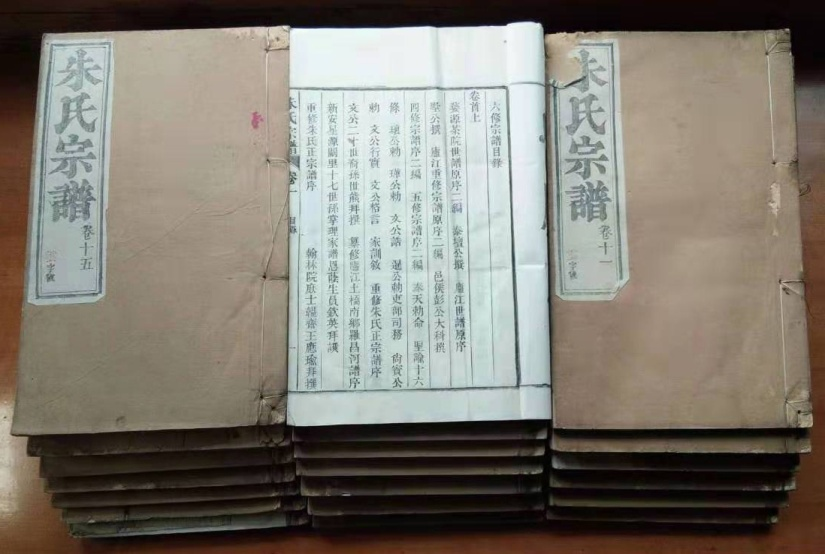 朱氏宗譜
卷十一
字號
六修宗譜目錄
卷首上
婺源茶院世譜原序二編 泰壇公撰 廬江世譜原序
堅公撰 廬江重修宗譜原序二編 邑侯彭公大科撰
四修宗譜序二編 五修宗譜序二編 奉天勅命 聖諭十六
條 公勅 公勅 文公誥 暹公勅吏部司務 尚賓公
勅 文公行實 文公格言 家訓敘 重修朱氏正宗譜序
文公二十世裔孫世熊拜撰 纂修廬江土橋南鄉羅昌河譜序
新安星源闕里十七世孫掌理家譜恩蔭生員欽英拜譔
重修朱氏正宗譜序 翰林院庶士福齋王應瑜拜撰
朱氏宗譜 卷一 目錄 一
朱氏宗譜
卷十五
字號